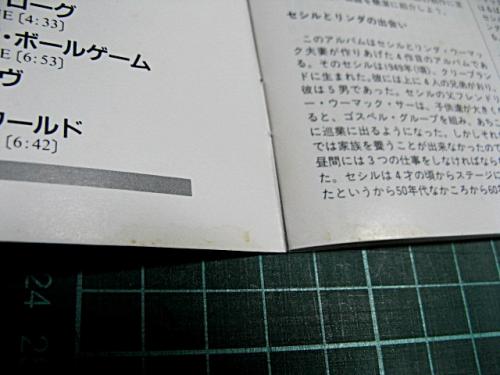 ローグ
E [4:33]
・ボールゲーム
E [6:53]
ヴ
ワールド
[6:42]
セシルとリンダの出会い
このアルバムはセシルとリンダ・ウーマッ
ク夫妻が作りあげた4作目のアルバムであ
る。そのセシルは1949年(頃)、クリーブラン
ドに生まれた。彼には上に4人の兄弟があり、
彼は5男であった。セシルの父フレンドリ
ー・ウーマック・サーは、子供達が大きくな
ると、ゴスペル・グループを組み、あちこ
に巡業に出るようになった。しかしそれ
では家族を養うことが出来なかったので
昼間には3つの仕事をしなければなら
た。セシルは4才の頃からステージに
たというから50年代なかころから60
24